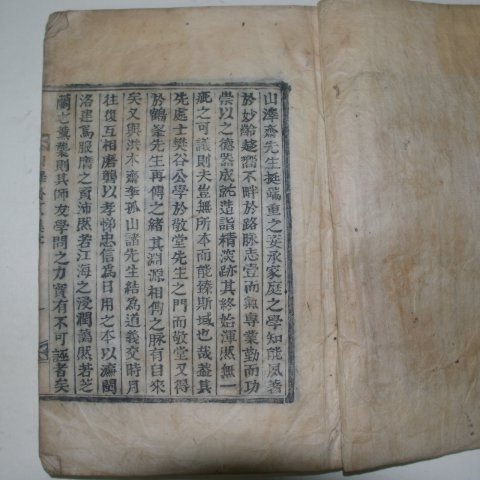 山澤齋先生挺端重之姿承家庭之學知能夙著
於妙齡趍嚮不畔於路脉志壹而氣專業勤而功
崇以之德器成就造詣精深跡其終始渾然無一
疵之可議則夫豈無所本而能臻斯域也哉盖其
先處士樊谷公學於敬堂先生之門而敬堂又得
於鶴峯先生再傳之緖其淵源相傳之脉有自來
矣又與洪木齋李孤山諸先生結爲道義交時月
往復互相磨礱以孝悌忠信爲日用之本以濂閩
洛建爲服膺之資沛然若江海之浸潤藹然若芝
蘭之薰襲則其師友學問之力實有不可誣者矣